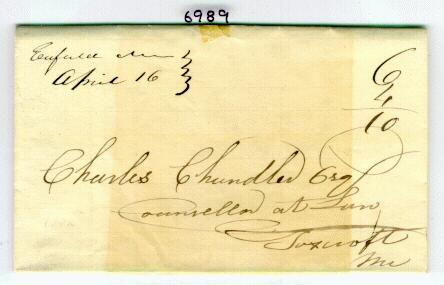 6989
Enfield Me
April 16
6
4
10
Charles Chandler Esq
Counsellor at Law
Foxcroft
Me